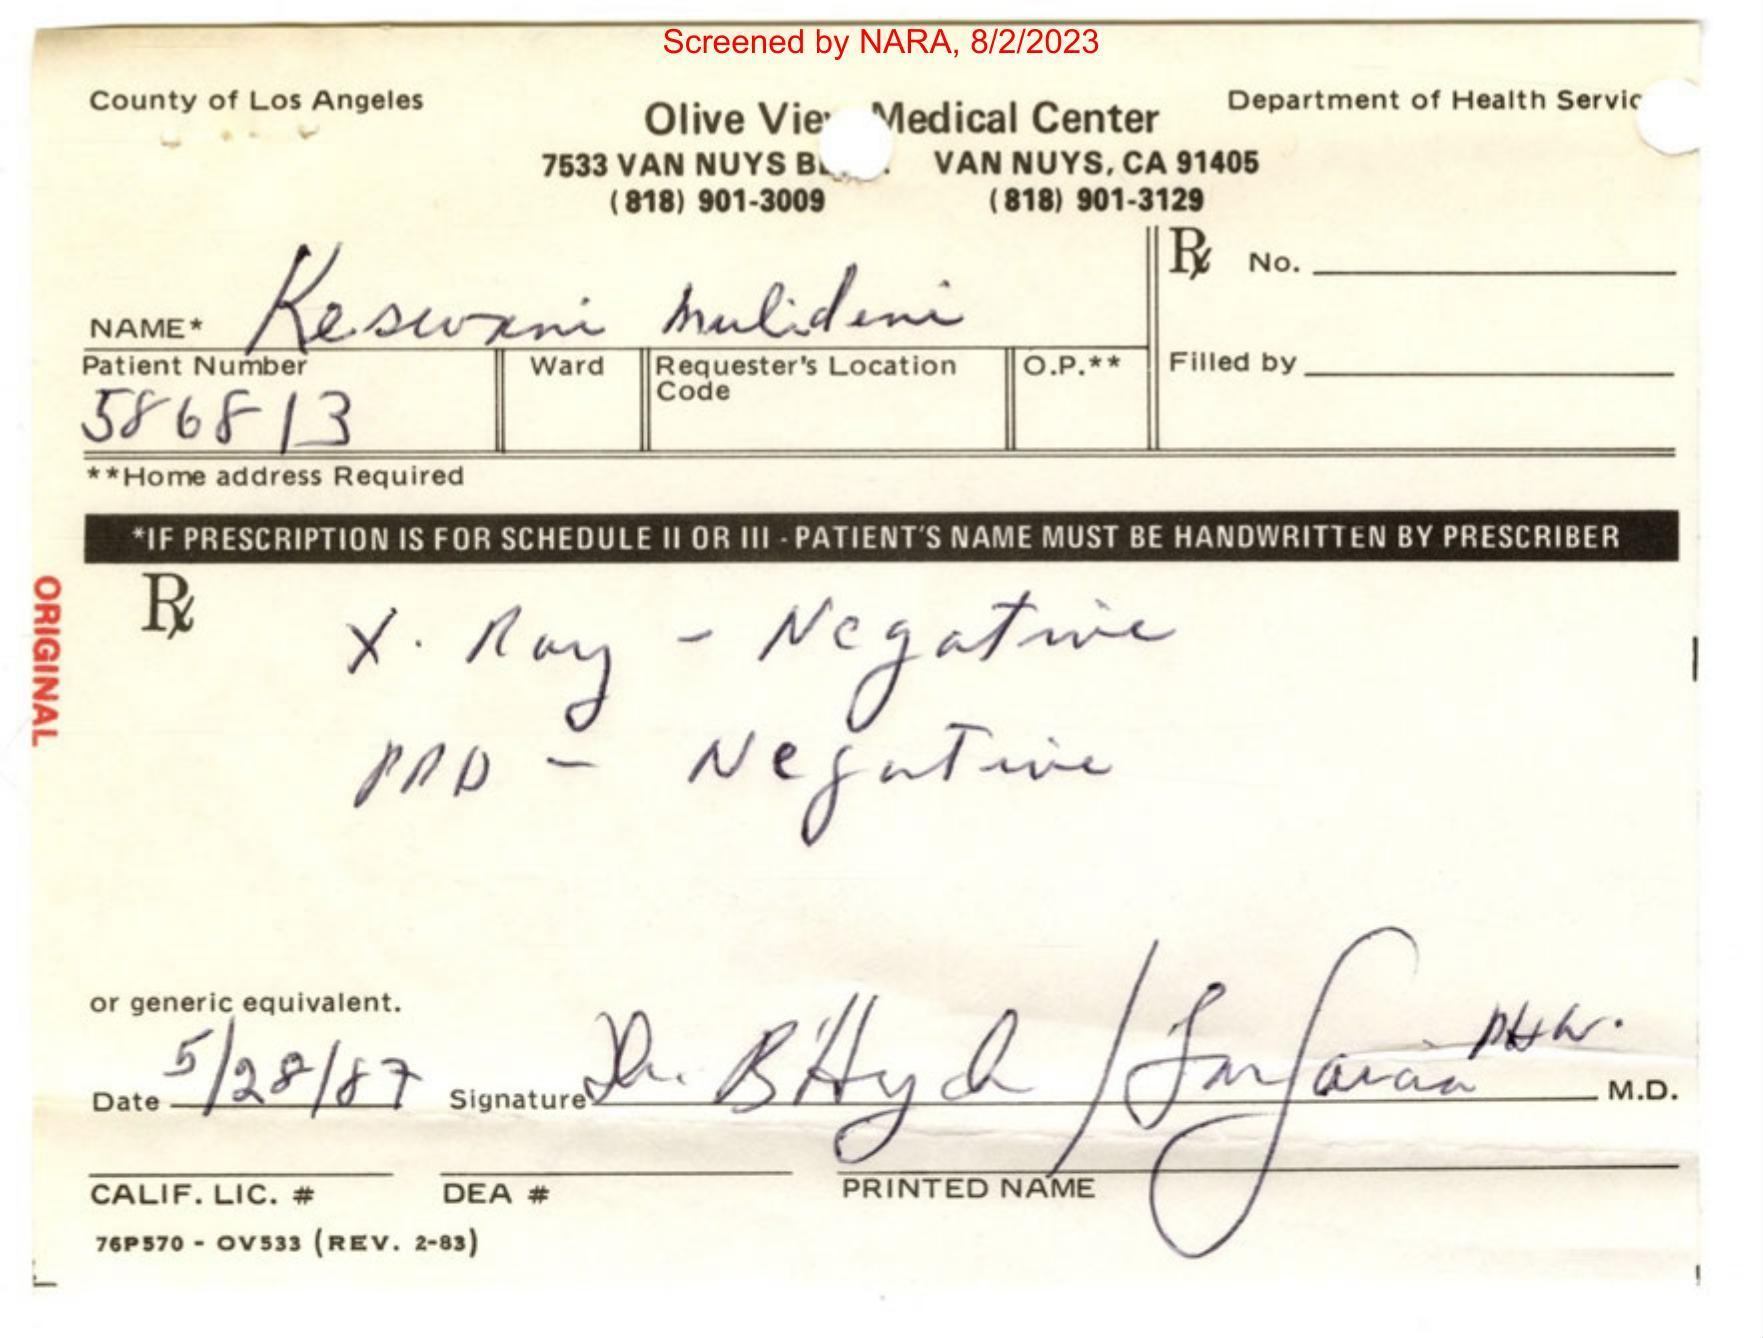 Screened by NARA, 8/2/2023
County of Los Angeles
Department of Health Servic
Olive Vie Medical Center
7533 VAN NUYS BL. VAN NUYS, CA 91405
(818) 901-3009 (818) 901-3129
NAME* Keswani Mulideni
℞ No.
Patient Number Ward Requester's Location Code O.P.** Filled by
586813
**Home address Required
*IF PRESCRIPTION IS FOR SCHEDULE II OR III - PATIENT'S NAME MUST BE HANDWRITTEN BY PRESCRIBER
ORIGINAL
℞
X. Ray - Negative
PPD - Negative
or generic equivalent.
Date 5/28/87 Signature Dr. B Hyde / PHW. M.D.
CALIF. LIC. # DEA # PRINTED NAME
76P570 - OV533 (REV. 2-83)